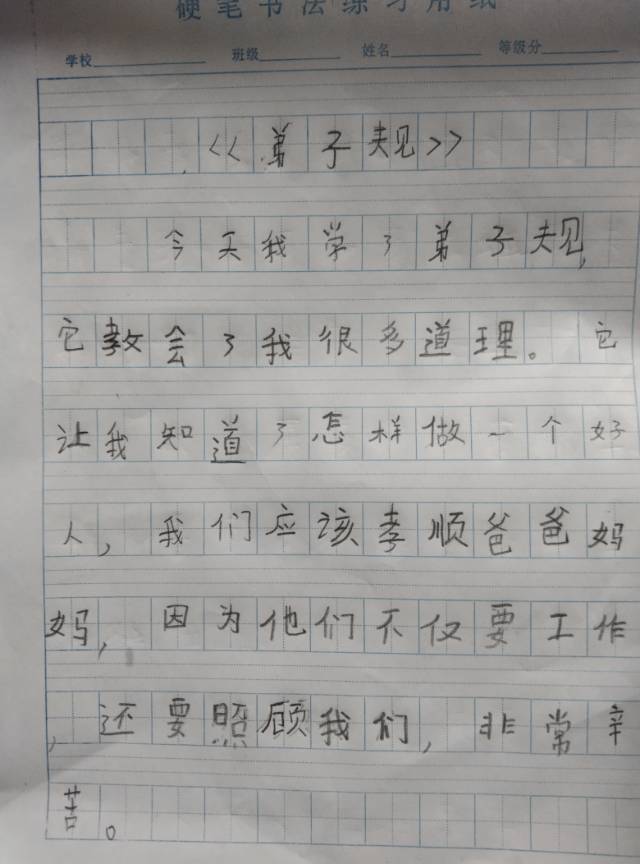 硬笔书法练习用纸
学校 班级 姓名 等级分
<<弟子规>>
今天我学了弟子规,
它教会了我很多道理。它
让我知道了怎样做一个好
人,我们应该孝顺爸爸妈
妈,因为他们不仅要工作
,还要照顾我们,非常辛
苦。